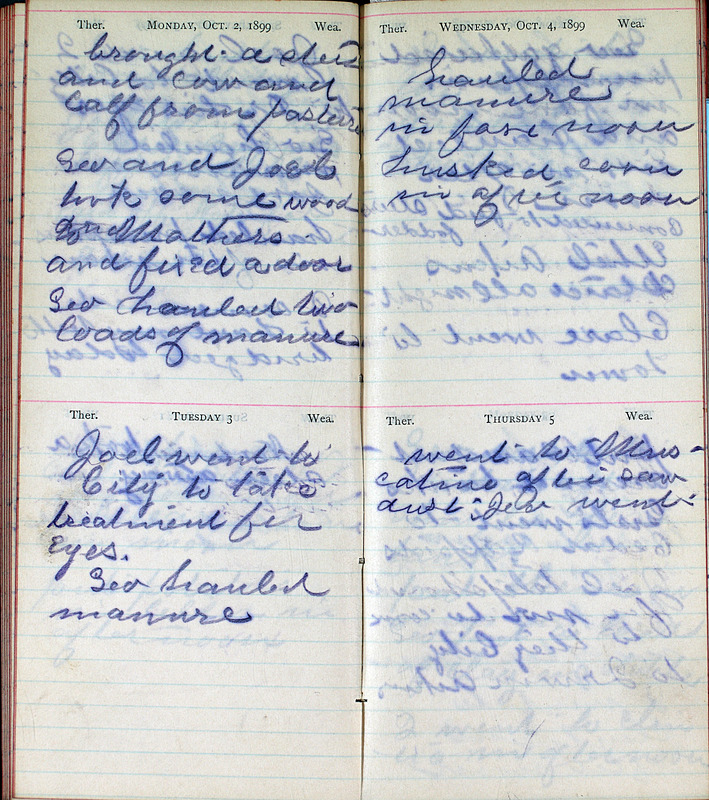 Ther. MONDAY, OCT. 2, 1899 Wea.
brought a
and cow and
Calf from pasture
Geo and Joel
took some wood
to Mothers
and fixed a door
Geo hauled two
loads of manure
Ther. TUESDAY 3 Wea.
Joel went to
City to take
treatment for
Eyes.
Geo hauled
manure
Ther. WEDNESDAY, OCT. 4, 1899 Wea.
hauled
manure
in fore noon
husked corn
in after noon
Ther. THURSDAY 5 Wea.
went to Mus-
catine after saw
dust. went